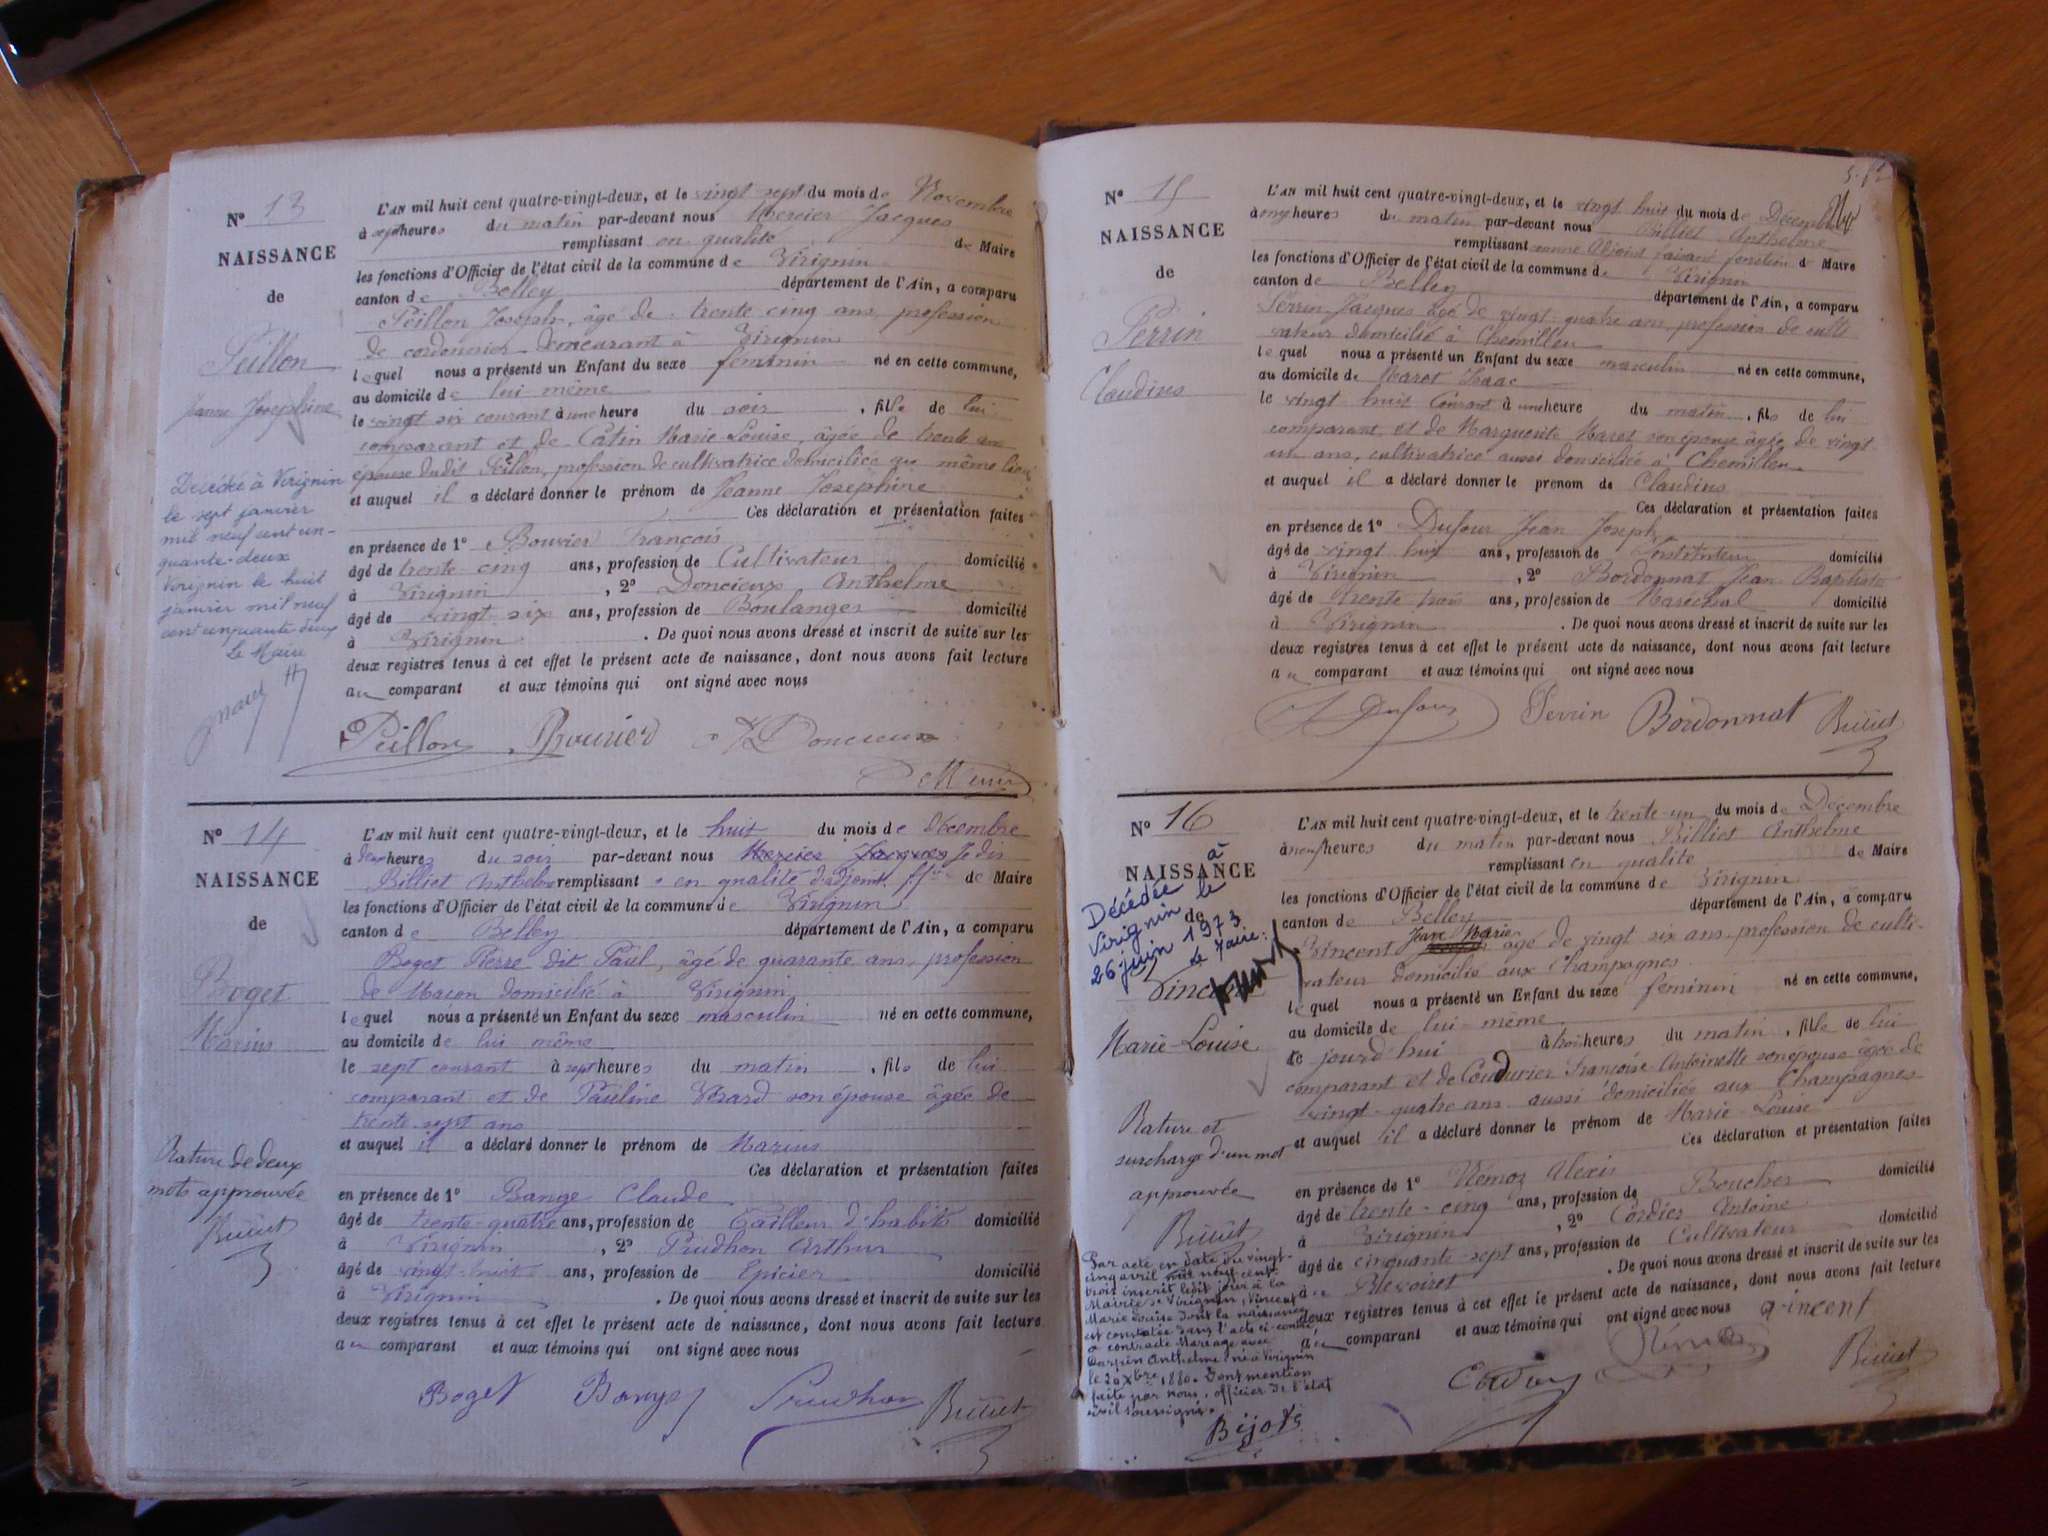 N° 13
NAISSANCE
de
Peillon
Jeanne Josephine
Décédée à Virignin
le sept janvier
mil neuf cent cin-
quante-deux
Virignin le huit
janvier mil neuf
cent cinquante deux
Le Maire
L'AN mil huit cent quatre-vingt-deux, et le vingt sept du mois de Novembre
à sept heures du matin par-devant nous Mercier Jacques
remplissant en qualité de Maire
les fonctions d'Officier de l'état civil de la commune de Virignin
canton de Belley département de l'Ain, a comparu
Peillon Joseph, âgé de trente cinq ans, profession
de cordonnier demeurant à Virignin
lequel nous a présenté un Enfant du sexe feminin né en cette commune,
au domicile de lui même
le vingt six courant à une heure du soir, fille de lui
comparant et de Catin Marie Louise, âgée de trente ans
épouse dudit Peillon, profession de cultivatrice domiciliée au même lieu
et auquel il a déclaré donner le prénom de Jeanne Josephine
Ces déclaration et présentation faites
en présence de 1° Bouvier François
âgé de trente-cinq ans, profession de Cultivateur domicilié
à Virignin, 2° Doncieux Anthelme
âgé de vingt six ans, profession de Boulanger domicilié
à Virignin. De quoi nous avons dressé et inscrit de suite sur les
deux registres tenus à cet effet le présent acte de naissance, dont nous avons fait lecture
au comparant et aux témoins qui ont signé avec nous
Peillon Bouvier Doncieux
N° 14
NAISSANCE
de
Boget
Marius
Rature de deux
mots approuvée
Billiet
L'AN mil huit cent quatre-vingt-deux, et le huit du mois de Décembre
à deux heures du soir par-devant nous Mercier Jacques Je dis
Billiet Anthelme remplissant en qualité d'adjoint de Maire
les fonctions d'Officier de l'état civil de la commune de Virignin
canton de Belley département de l'Ain, a comparu
Boget Pierre dit Paul, âgé de quarante ans, profession
de Maçon domicilié à Virignin
lequel nous a présenté un Enfant du sexe masculin né en cette commune,
au domicile de lui même
le sept courant à sept heures du matin, fils de lui
comparant et de Pauline Vérard son épouse âgée de
trente-sept ans
et auquel il a déclaré donner le prénom de Marius
Ces déclaration et présentation faites
en présence de 1° Bange Claude
âgé de trente-quatre ans, profession de Tailleur d'habits domicilié
à Virignin, 2° Prudhon Arthur
âgé de vingt-huit ans, profession de Epicier domicilié
à Virignin. De quoi nous avons dressé et inscrit de suite sur les
deux registres tenus à cet effet le présent acte de naissance, dont nous avons fait lecture
au comparant et aux témoins qui ont signé avec nous
Boget Bange Prudhon Billiet
N° 15
NAISSANCE
de
Perrin
Claudius
L'AN mil huit cent quatre-vingt-deux, et le vingt huit du mois de Décembre
à onze heures du matin par-devant nous Billiet Anthelme
remplissant comme Adjoint faisant fonction de Maire
les fonctions d'Officier de l'état civil de la commune de Virignin
canton de Belley département de l'Ain, a comparu
Perrin Jacques âgé de vingt quatre ans, profession de culti
vateur domicilié à Chemilleu
lequel nous a présenté un Enfant du sexe masculin né en cette commune,
au domicile de Maret Isaac
le vingt huit Courant à une heure du matin, fils de lui
comparant et de Marguerite Maret son épouse âgée de vingt
un ans, cultivatrice aussi domiciliée à Chemilleu
et auquel il a déclaré donner le prénom de Claudius
Ces déclaration et présentation faites
en présence de 1° Dufour Jean Joseph
âgé de vingt huit ans, profession de Instituteur domicilié
à Virignin, 2° Bordonnat Jean Baptiste
âgé de trente trois ans, profession de Maréchal domicilié
à Virignin. De quoi nous avons dressé et inscrit de suite sur les
deux registres tenus à cet effet le présent acte de naissance, dont nous avons fait lecture
au comparant et aux témoins qui ont signé avec nous
Dufour Perrin Bordonnat Billiet
N° 16
NAISSANCE
de
Décédée à
Virignin le
26 juin 1973
Le Maire:
Vincent
Marie-Louise
Rature et
surcharge d'un mot
approuvée
Billiet
Par acte en date du vingt-
cinq avril mil neuf cent
trois inscrit ledit jour à la
Mairie de Virignin, Vincent
Marie Louise dont la naissance
est constatée dans l'acte ci-contre
a contracté Mariage avec
Anthelme né à Virignin
le 20 Xbre 1880. Dont mention
faite par nous, officier de l'état
civil soussigné.
Bijots
L'AN mil huit cent quatre-vingt-deux, et le trente-un du mois de Décembre
à neuf heures du matin par-devant nous Billiet Anthelme
remplissant en qualité de Maire
les fonctions d'Officier de l'état civil de la commune de Virignin
canton de Belley département de l'Ain, a comparu
Vincent Jean Marie âgé de vingt six ans, profession de culti-
vateur domicilié aux Champagnes
lequel nous a présenté un Enfant du sexe feminin né en cette commune,
au domicile de lui-même
le jourd'hui à trois heures du matin, fille de lui
comparant et de Coudurier Françoise Antoinette son épouse âgée de
vingt-quatre ans aussi domiciliée aux Champagnes
et auquel il a déclaré donner le prénom de Marie-Louise
Ces déclaration et présentation faites
en présence de 1° Némoz Alexis
âgé de trente-cinq ans, profession de Boucher domicilié
à Virignin, 2° Cordier Antoine
âgé de cinquante-sept ans, profession de Cultivateur domicilié
à. De quoi nous avons dressé et inscrit de suite sur les
deux registres tenus à cet effet le présent acte de naissance, dont nous avons fait lecture
au comparant et aux témoins qui ont signé avec nous vincent
Némoz Billiet